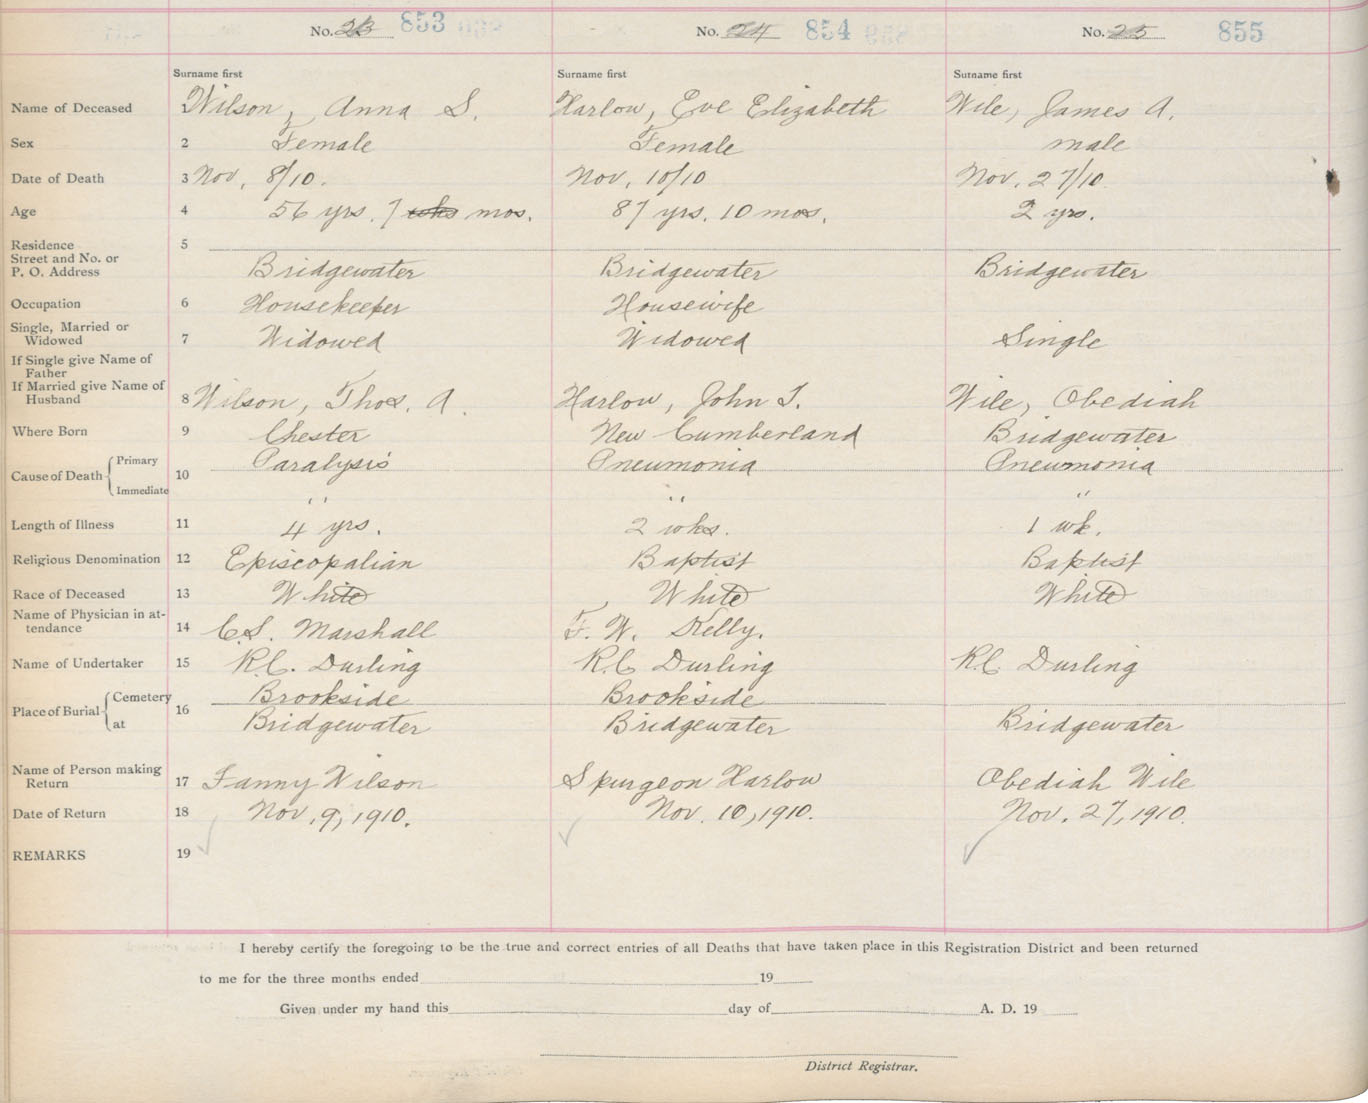 No. 23 853 No. 24 854 No. 25 855
Surname first Surname first Surname first
Name of Deceased 1 Wilson, Anna S. Harlow, Eve Elizabeth Wile, James A.
Sex 2 Female Female male
Date of Death 3 Nov. 8/10. Nov. 10/10 Nov. 27/10
Age 4 56 yrs. 7 wks mos. 87 yrs. 10 mos. 2 yrs.
Residence 5
Street and No. or
P. O. Address Bridgewater Bridgewater Bridgewater
Occupation 6 Housekeeper Housewife
Single, Married or
Widowed 7 Widowed Widowed Single
If Single give Name of
Father
If Married give Name of
Husband 8 Wilson, Thos. A. Harlow, John T. Wile, Obediah
Where Born 9 Chester New Cumberland Bridgewater
Cause of Death 10 Primary Paralysis Pneumonia Pneumonia
Immediate " " "
Length of Illness 11 4 yrs. 2 wks. 1 wk.
Religious Denomination 12 Episcopalian Baptist Baptist
Race of Deceased 13 White White White
Name of Physician in at-
tendance 14 C.S. Marshall F. W. Kelly.
Name of Undertaker 15 R.C. Durling R.C Durling R.C. Durling
Place of Burial 16 Cemetery Brookside Brookside
at Bridgewater Bridgewater Bridgewater
Name of Person making
Return 17 Fanny Wilson Spurgeon Harlow Obediah Wile
Date of Return 18 Nov. 9, 1910. Nov. 10, 1910. Nov. 27, 1910.
REMARKS 19
I hereby certify the foregoing to be the true and correct entries of all Deaths that have taken place in this Registration District and been returned
to me for the three months ended 19
Given under my hand this day of A. D. 19
District Registrar.